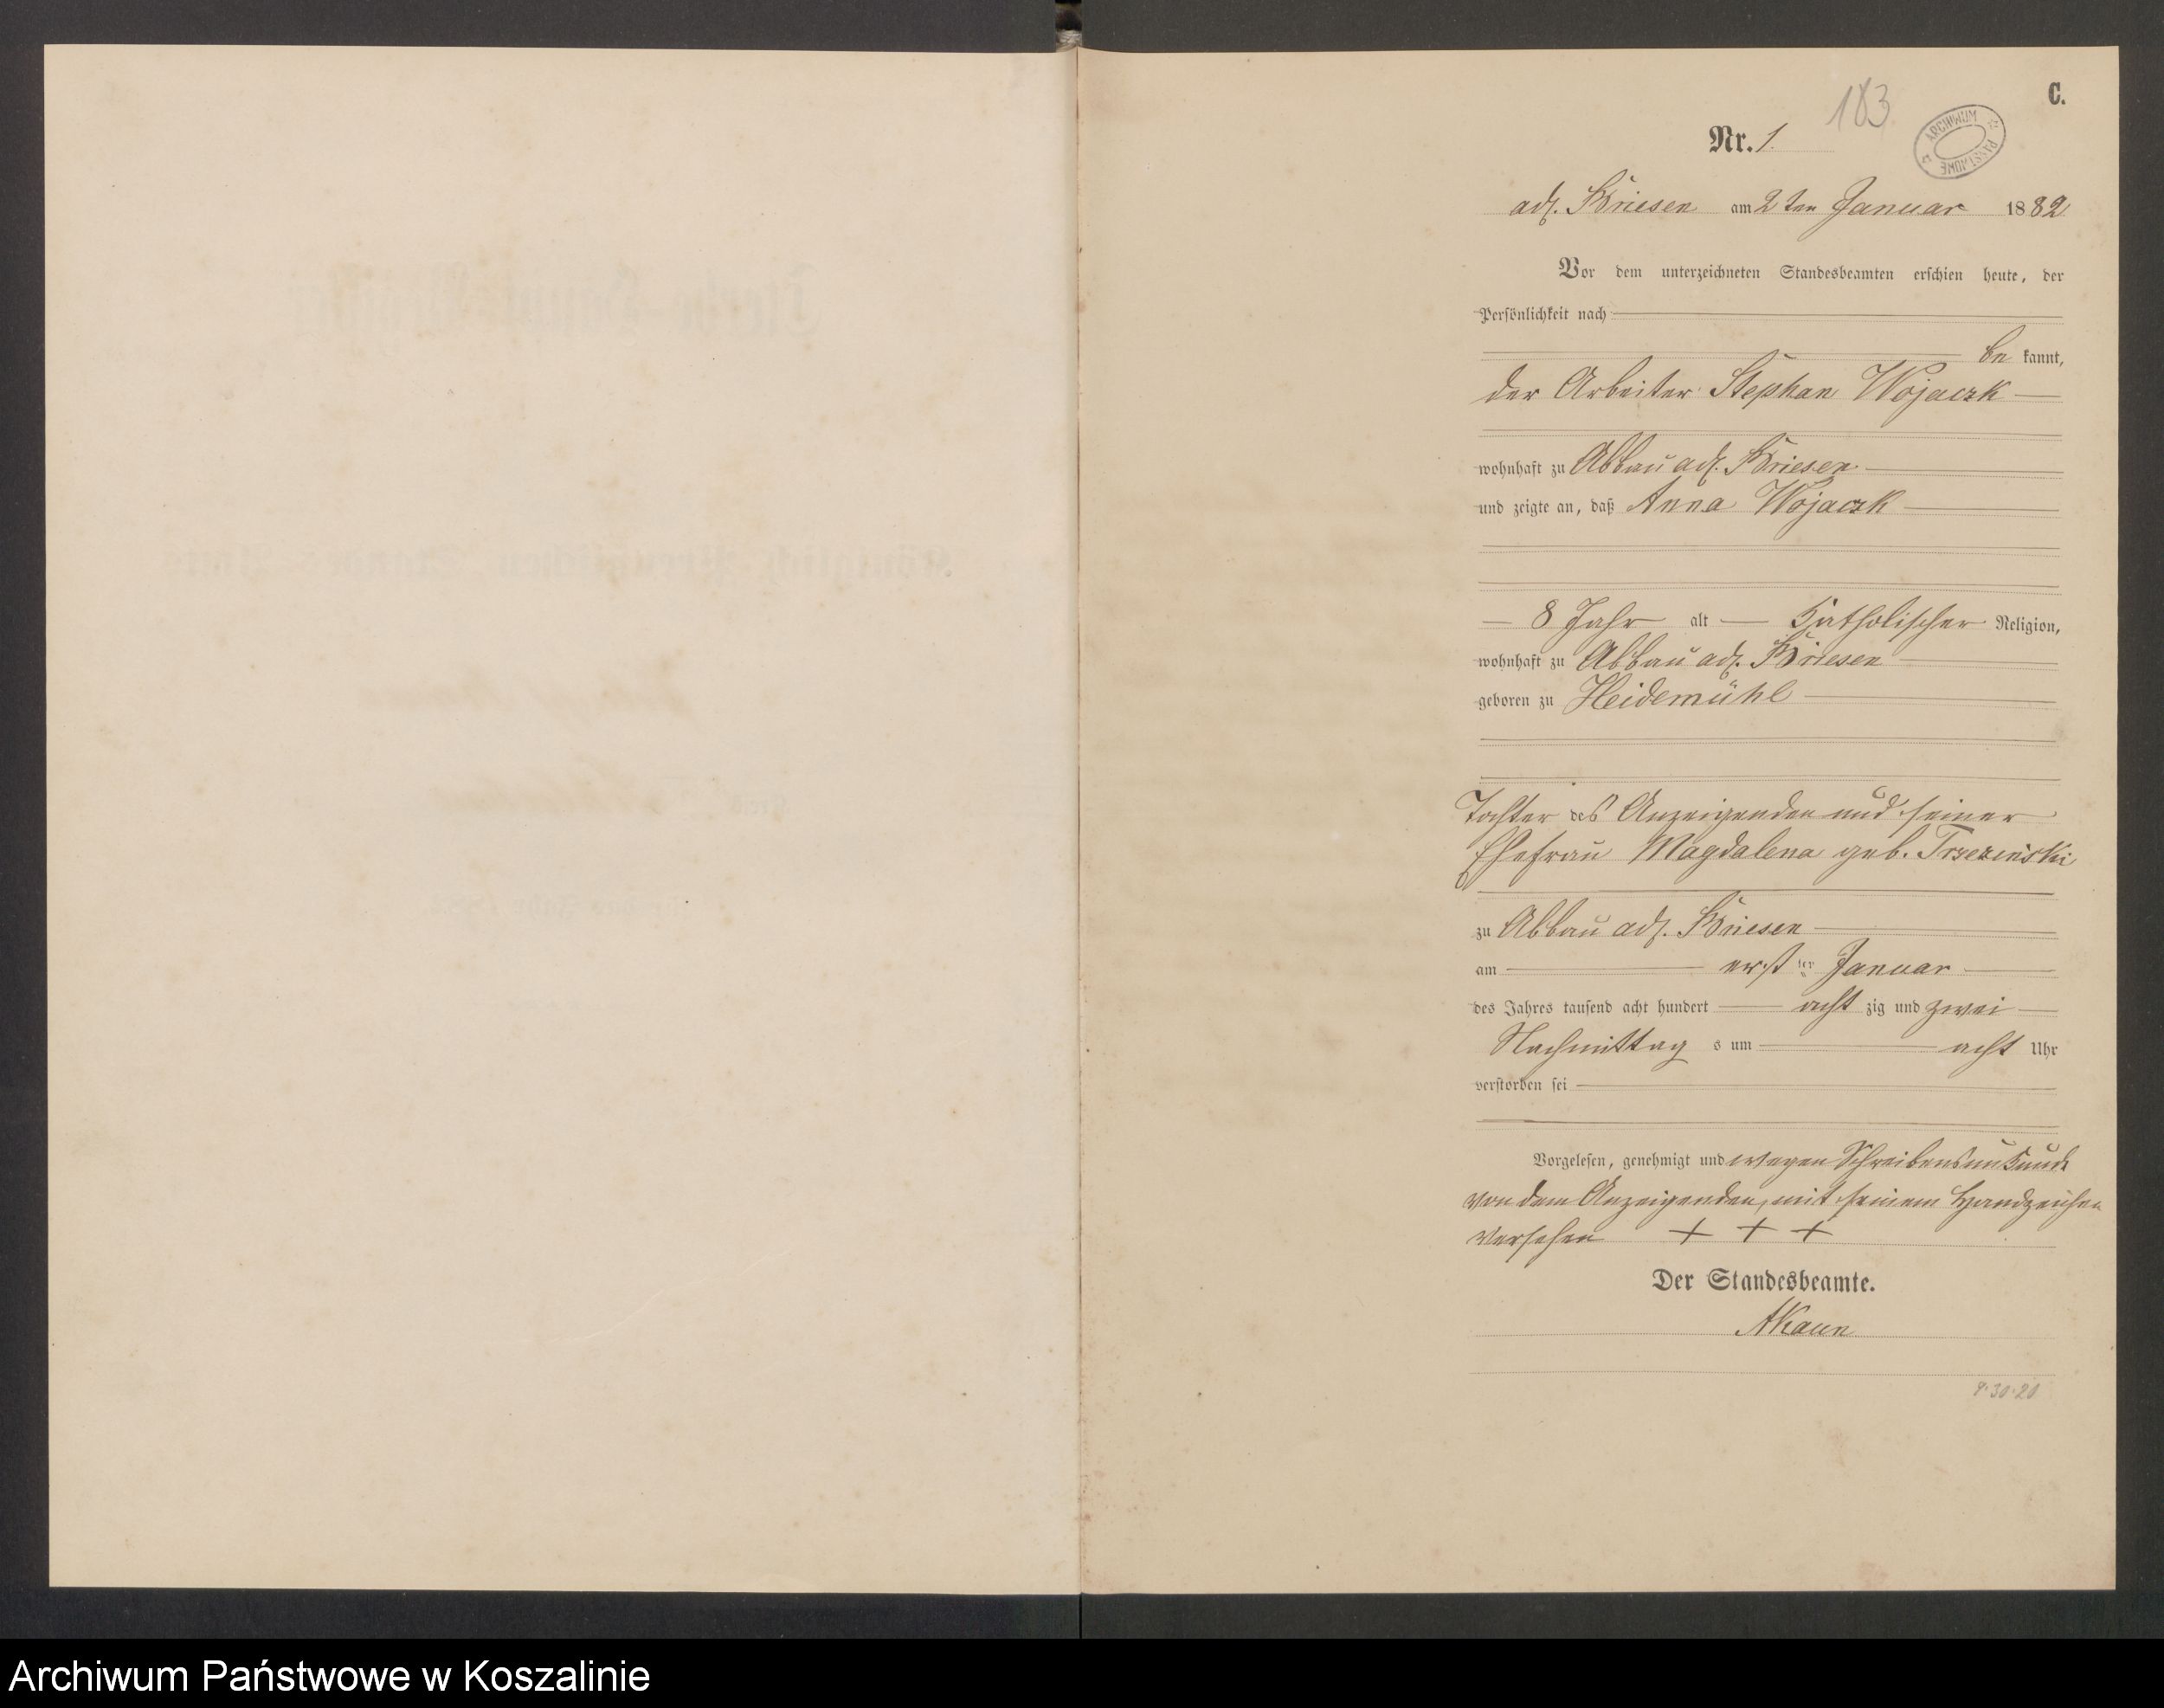 183
C.
Nr. 1.
ARCHIWUM PAŃSTWOWE
adl. Briesen am 2ten Januar 1882
Vor dem unterzeichneten Standesbeamten erschien heute, der
Persönlichkeit nach
be kannt,
der Arbeiter Stephan Wojaczk
wohnhaft zu Abbau adl. Briesen
und zeigte an, daß Anna Wojaczk
8 Jahr alt Katholischer Religion,
wohnhaft zu Abbau adl. Briesen
geboren zu Heidemühl
Tochter des Anzeigenden und seiner
Ehefrau Magdalena geb. Trzezinski
zu Abbau adl. Briesen
am erst ten Januar
des Jahres tausend acht hundert acht zig und zwei
Nachmittag s um acht Uhr
verstorben sei
Vorgelesen, genehmigt und wegen Schreibensunkunde
von dem Anzeigenden, mit seinem Handzeichen
versehen + + +
Der Standesbeamte.
AKaun
9.30.20
Archiwum Państwowe w Koszalinie